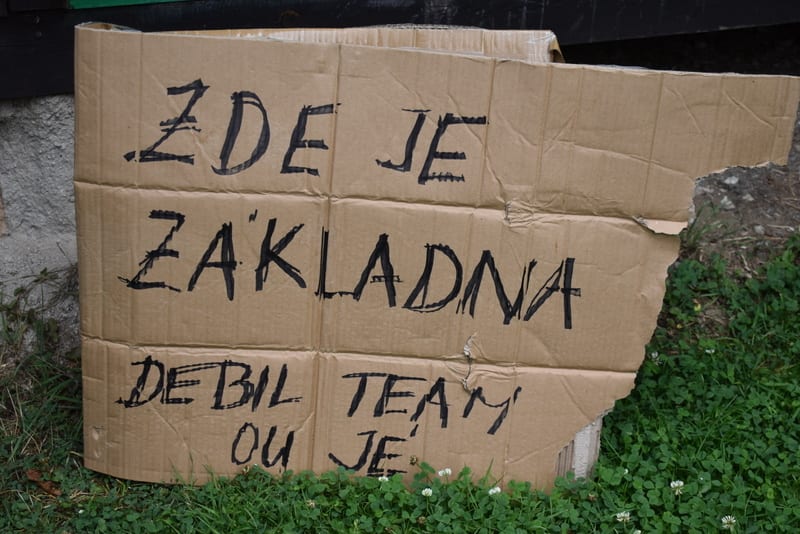 ZDE JE
ZÁKLADNA
DEBIL TEAM
OU JÉ